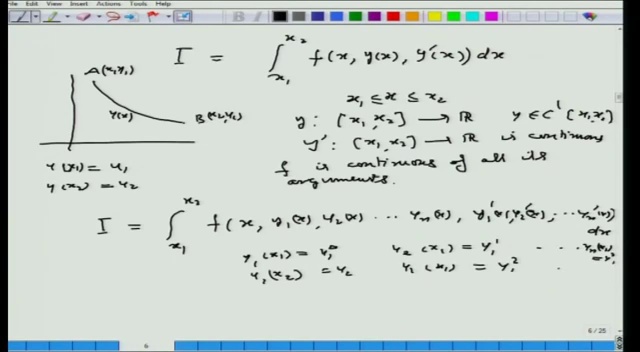 File Edit View Insert Actions Tools Help
I = ∫_{x_1}^{x_2} f(x, y(x), y'(x)) dx
A(x_1, y_1)
x_1 ≤ x ≤ x_2
y(x)
B(x_2, y_2)
y : [x_1, x_2] → ℝ y ∈ C' [x_1, x_2]
y' : [x_1, x_2] → ℝ is continuous
y(x_1) = y_1
f is continuous of all its
y(x_2) = y_2
arguments.
I = ∫_{x_1}^{x_2} f(x, y_1(x), y_2(x) ... y_n(x), y_1'(x), y_2'(x), ... y_n'(x)) dx
y_1(x_1) =
y_2(x_1) = y_1^1 ...
y_1(x_2) = y_2
= y_1^2
6 / 25
6